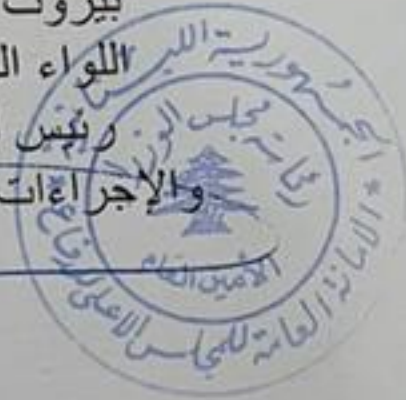 بيروت
اللواء
رئيس
والإجراءات
الجمهورية اللبنانية
رئاسة مجلس الوزراء
الأمين العام
* الامانة العامة للمجلس الاعلى للدفاع *